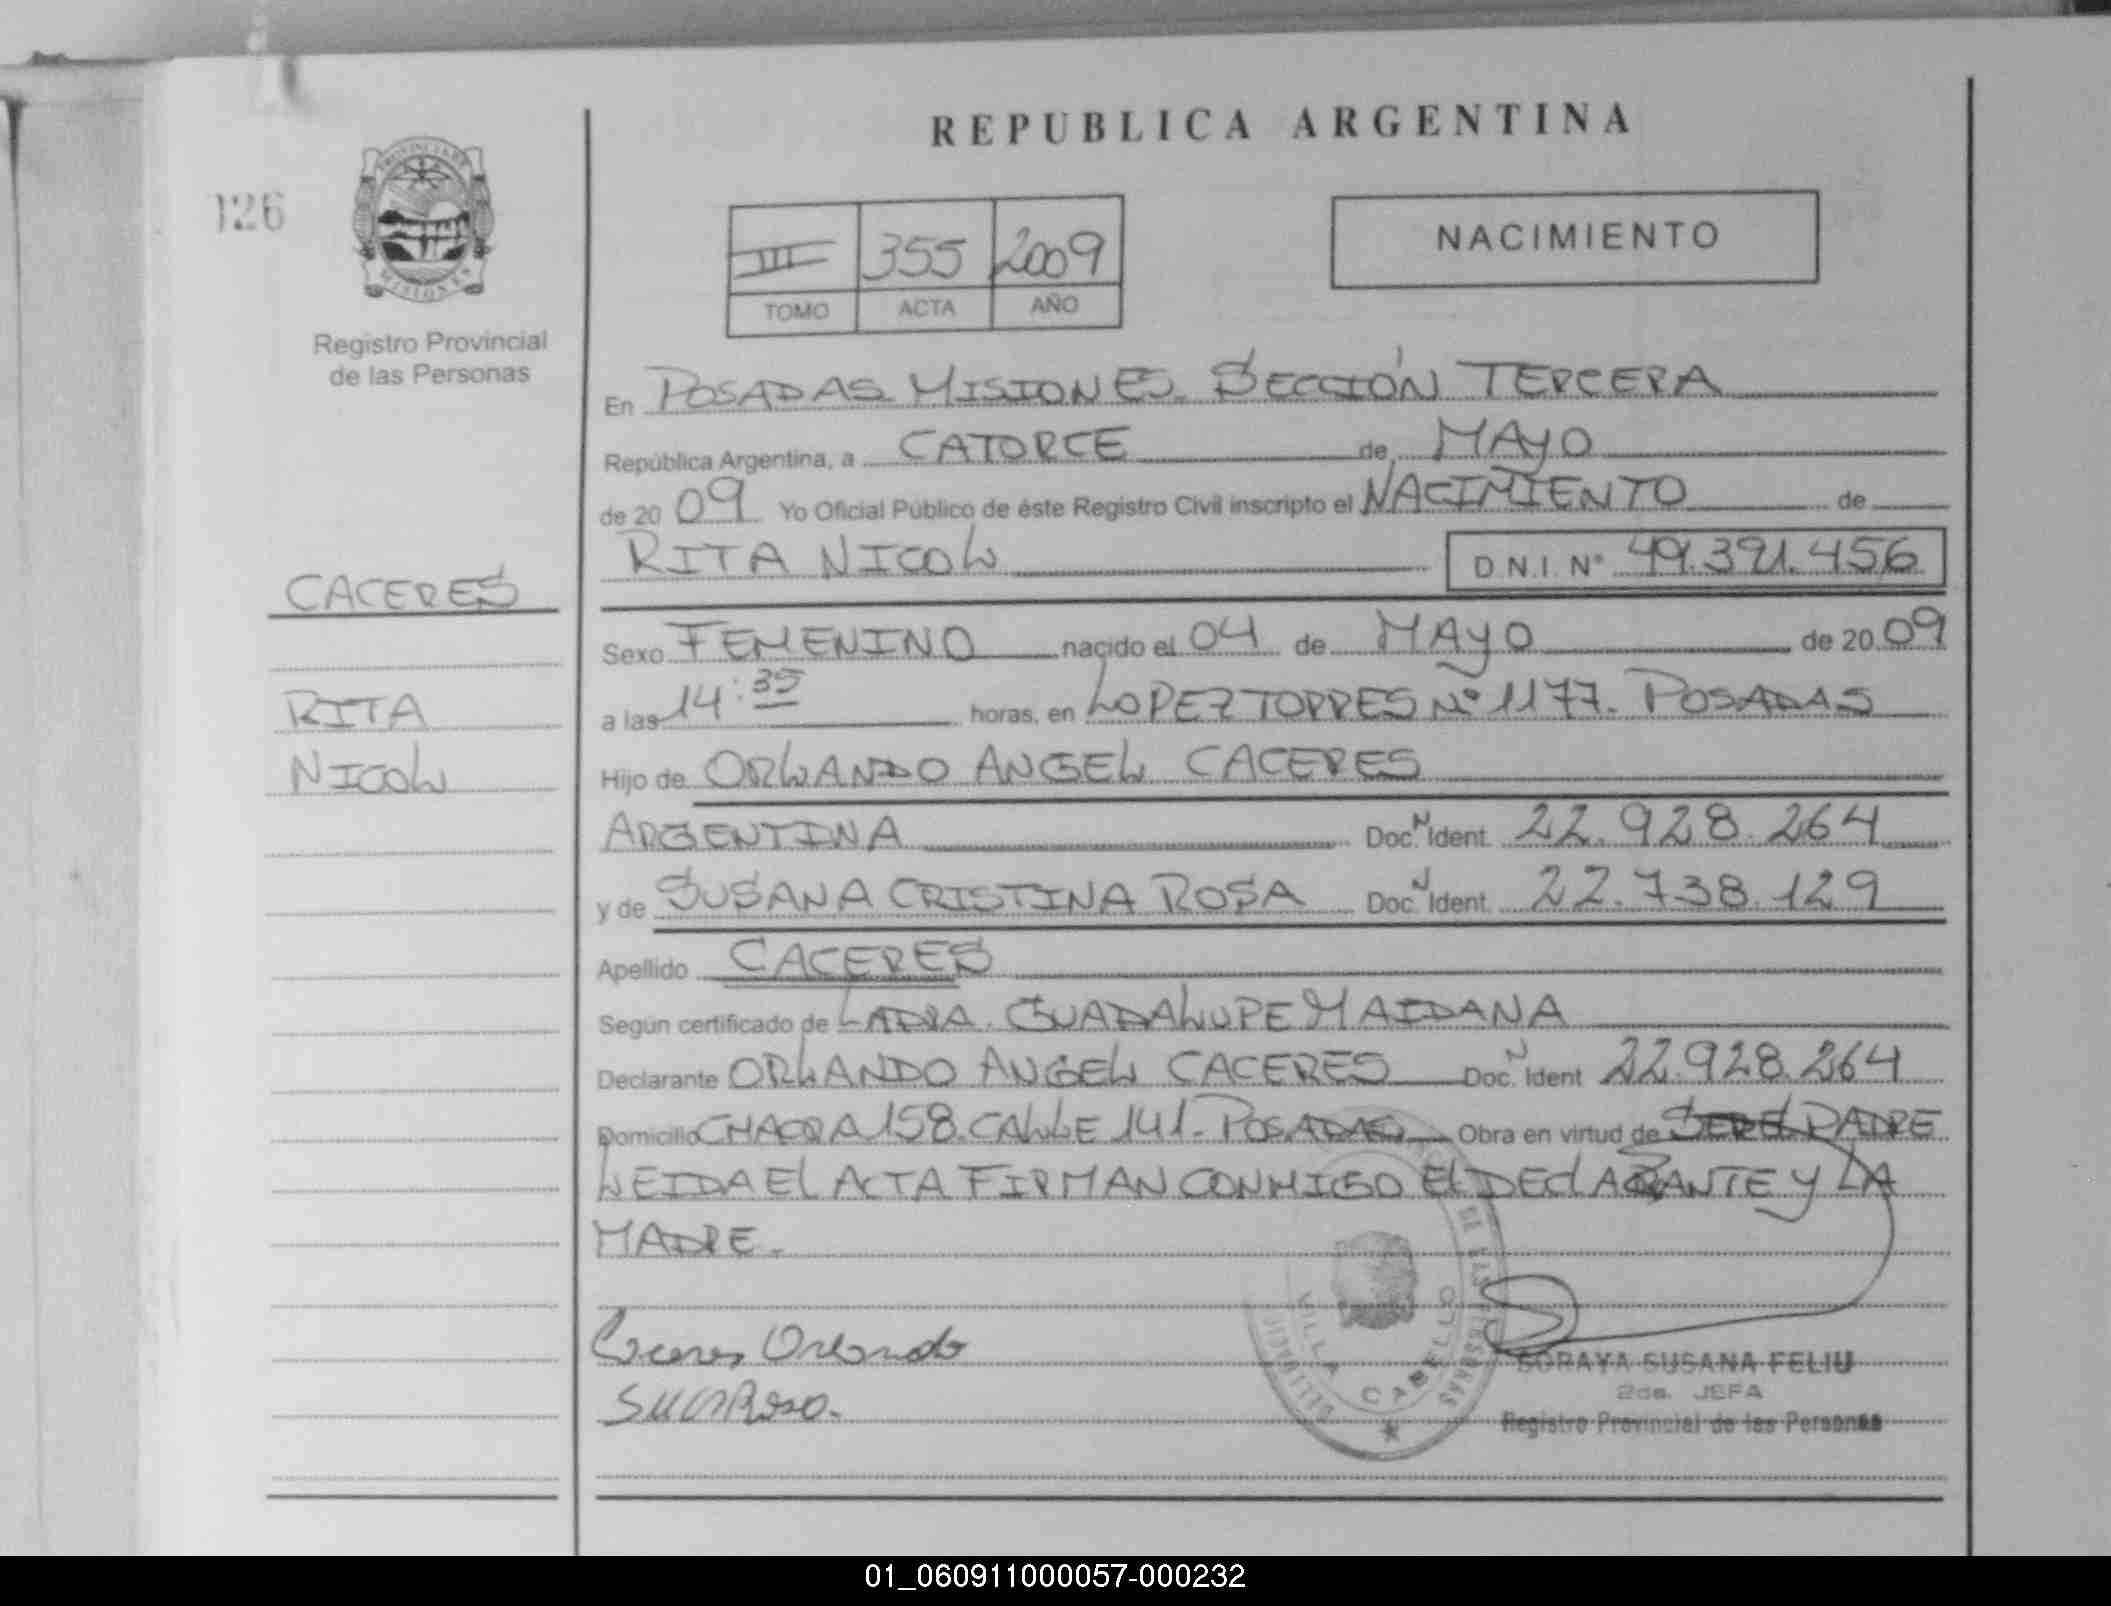 REPUBLICA ARGENTINA
126
PROVINCIA DE MISIONES
Registro Provincial
de las Personas
III 355 2009
TOMO ACTA AÑO
NACIMIENTO
En POSADAS MISIONES. SECCIÓN TERCERA
República Argentina, a CATORCE de MAYO
de 2009 Yo Oficial Público de éste Registro Civil inscripto el NACIMIENTO de
RITA NICOL D.N.I. Nº 49.391.456
CACERES
Sexo FEMENINO nacido el 04 de MAYO de 2009
RITA
a las 14:35 horas, en LOPEZ TORRES Nº 1177. POSADAS
NICOL
Hijo de ORLANDO ANGEL CACERES
ARGENTINA Doc. N Ident. 22.928.264
y de SUSANA CRISTINA ROSA Doc. N Ident. 22.738.129
Apellido CACERES
Según certificado de GUADALUPE MAIDANA
Declarante ORLANDO ANGEL CACERES Doc. N Ident 22.928.264
Domicilio CHACRA 158. CALLE 141. POSADAS Obra en virtud de SER EL PADRE
LEIDA EL ACTA FIRMAN CONMIGO EL DECLARANTE Y LA
MADRE.
Caceres Orlando
VILLA CABELLO
DE LAS PERSONAS
SORAYA SUSANA FELIU
2da. JEFA
Registro Provincial de las Personas
01_060911000057-000232